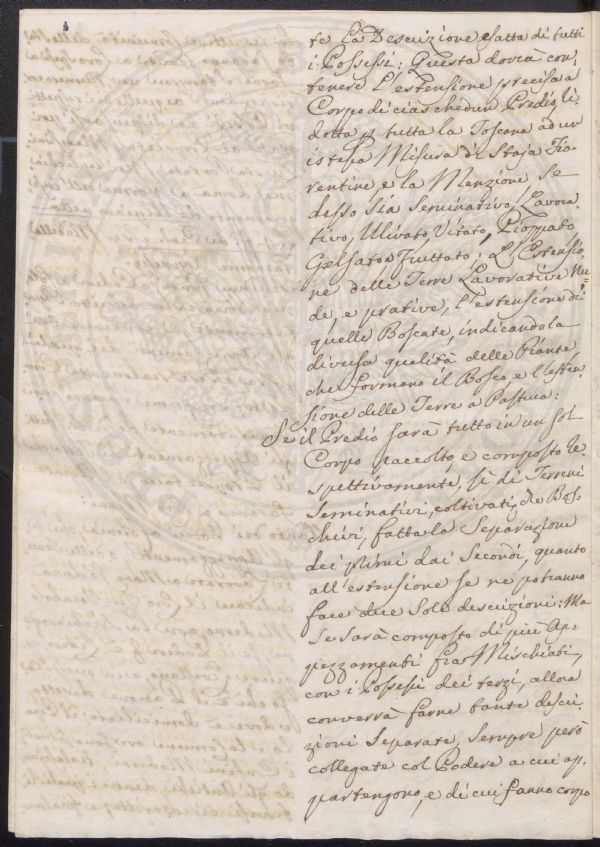 te La Descrizione esatta di tutti
i Possessi: Questa dovrà con
tenere L'estensione precisa a
Corpo di ciaschedun Predio ri-
dotta p tutta la Toscana ad un
istessa Misura di Staja Fio
rentine, e la Menzione se
desso sia Seminativo, Lavora
tivo, Ulivato, Vitato, Pioppato
Gelsato e Fruttato; L'Estensio-
ne delle Terre Lavorative Nu-
de, e prative, l'estensione di
quelle Boscate, indicando la
diversa qualità delle Piante
che formano il Bosco, e l'esten
sione delle Terre a Pastura:
Se il Predio sarà tutto in un sol
Corpo raccolto, e composto re
spettivamente, sì di Terreni
Seminativi, coltivati, che Bos-
chivi, fatta la Separazione
dei primi dai Secondi, quanto
all'estensione se ne potranno
fare due Sole descrizioni: Ma
Se Sarà composto di più Ap-
pezzamenti fra Mischiati,
con i Possessi dei terzi, allora
converrà farne tante descri-
zioni Separate, Sempre però
collegate col Podere a cui ap-
partengono, e di cui fanno corpo